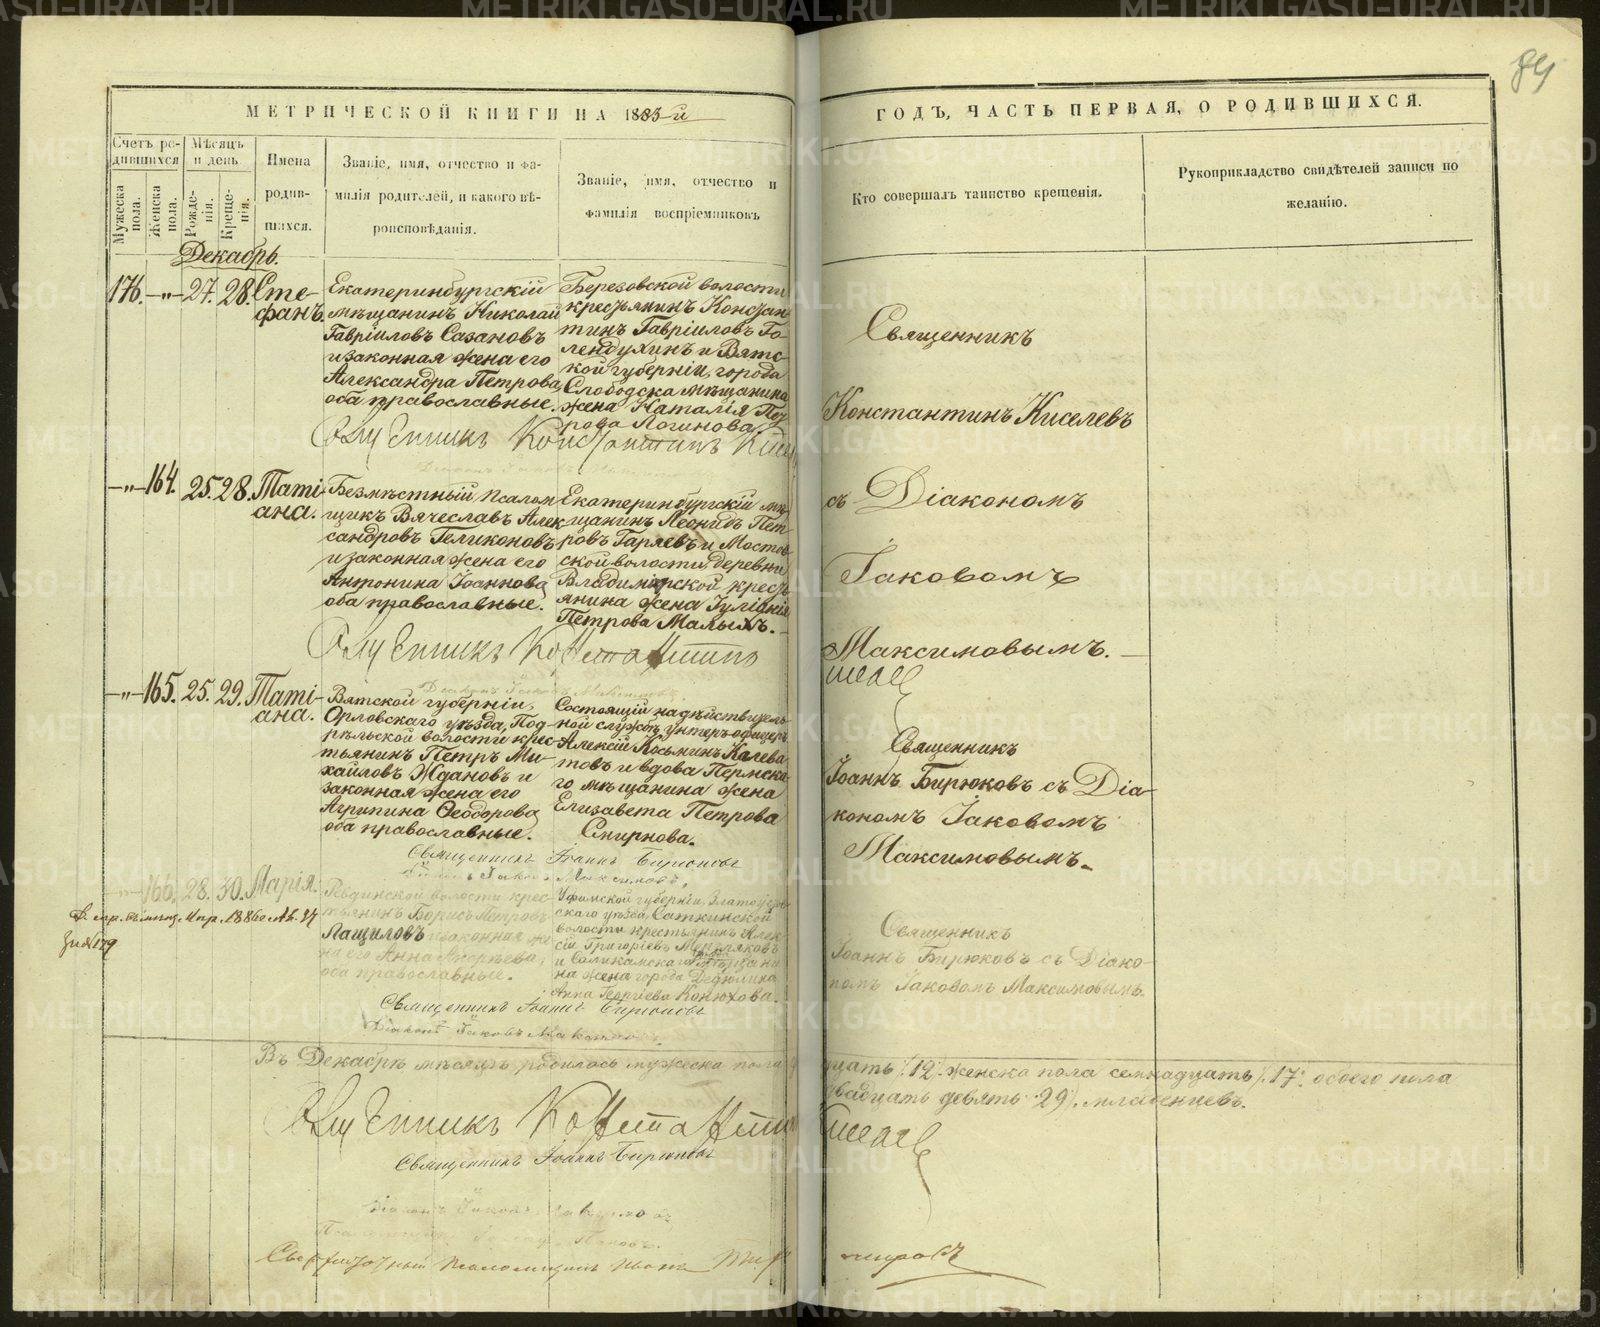 МЕТРИЧЕСКОЙ КНИГИ НА 1885й
ГОДЪ, ЧАСТЬ ПЕРВАЯ, О РОДИВШИХСЯ.
Счетъ ро-
дившихся
Мужеска пола.
Женска пола.
Мѣсяцъ
и день
Рожде-
нія.
Креще-
нія.
Имена
родив-
шихся.
Званіе, имя, отчество и фа-
милія родителей, и какого вѣ-
роисповѣданія.
Званіе, имя, отчество и
фамилія воспріемниковъ
Кто совершалъ таинство крещенія.
Рукоприкладство свидѣтелей записи по
желанію.
Декабрь.
176. —„— 27. 28. Сте-
фанъ.
Екатеринбургскій
мѣщанинъ Николай
Гавріиловъ Сазановъ
и законная жена его
Александра Петрова,
оба православные.
Березовской волости
крестьянинъ Констан
тинъ Гавріиловъ Го-
лендухинъ и Вятс-
кой губерніи, города
Слободска мѣщанина
жена Наталія Пет
рова Логинова.
Священникъ Константинъ
Священникъ
Константинъ Киселевъ
съ Діакономъ
Іаковомъ
Максимовымъ.
—„— 164. 25. 28. Таті-
ана.
Безмѣстный псалом
щикъ Вячеславъ Алек
сандровъ Геликоновъ
и законная жена его
Антонина Іоаннова
оба православные.
Екатеринбургскій мѣ
щанинъ Леонидъ Пет
ровъ Гаряевъ и Мостов
ской волости, деревни
Владимірской кресть
янина жена Іуліанія
Петрова Малыхъ.
Священникъ Константинъ
—„— 165. 25. 29. Таті-
ана.
Вятской губерніи,
Орловскаго уѣзда, Под-
рѣльской волости крес-
тьянинъ Петръ Ми-
хайловъ Ждановъ и
законная жена его
Агрипина Ѳеодорова
оба православные.
Состоящій на дѣйствитель
ной службѣ унтеръ-офицеръ
Алексій Косьминъ
товъ и вдова Пермска
го мѣщанина жена
Елизавета Петрова
Смирнова.
Священникъ
Іоаннъ Бирюковъ съ Діа-
кономъ Іаковомъ
Максимовымъ.
Священникъ Іоаннъ Бирюковъ
Діаконъ Іаковъ Максимовъ.
—„— 166. 28. 30. Марія.
Ревдинской волости крес-
тьянинъ Борисъ Петровъ
Лащиловъ и законная же
на его Анна Андреева,
оба православные.
Уфимской губерніи, Златоустов
скаго уѣзда, Саткинской
волости крестьянинъ Алек
сій Григоріевъ Мерзляковъ
и Соликамскаго
на жена города Дедюхина
Анна Георгіева Конюхова.
Священникъ
Іоаннъ Бирюковъ съ Діако-
номъ Іаковомъ Максимовымъ.
Священникъ Іоаннъ Бирюковъ
Діаконъ Іаковъ Максимовъ.
Въ Декабрѣ мѣсяцѣ родилось мужеска пола
цать /12/. женска пола семнадцать /17/. обоего пола
двадцать девять /29/. младенцевъ.
Священникъ Константинъ Киселевъ
Священникъ Іоаннъ Бирюковъ
Діаконъ Іаковъ Максимовъ
Сверхштатный псаломщикъ